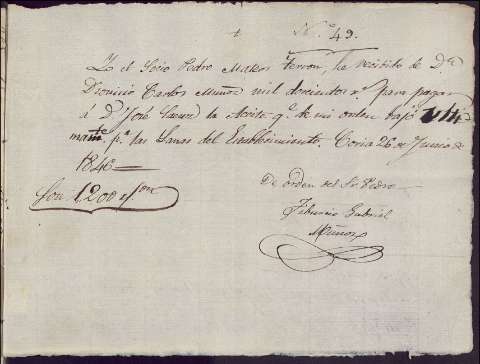 N.º 49.
Yo el Socio Pedro Matos Terron, he recibido de D.n
Dionisio Carlos Muñoz mil doscientos r.s para pagar
á D.n José la q.e de mi orden bajó
p.a las Lanas del Establecimiento. Coria 26 de Junio de
1846
Son 1200 r.s von
De orden del S.r Pedro
Gabriel
Muñoz